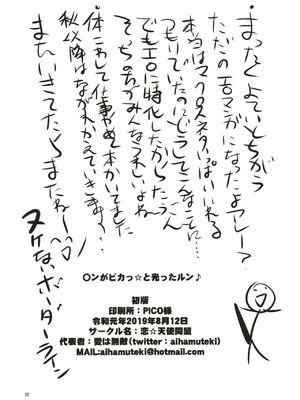 まったくよていとちがう
ただのエロマンガになったよアレー？
本当はマクロスネタいっぱいいれる
つもりでいたのにどうしてこんなことに
でもエロに特化したからうん
そっちの方がみんなうれしいよね
体こわして仕事やめて本かいてました
秋以降はながれかえていきます…
またいきてたらまたねー
ヌケないボーダーライン
〇ンがピカっ☆と光ったルン♪
初版
印刷所：PICO様
令和元年2019年8月12日
サークル名：恋☆天使同盟
代表者：愛は無敵(twitter：aihamuteki)
MAIL:aihamuteki@hotmail.com
26